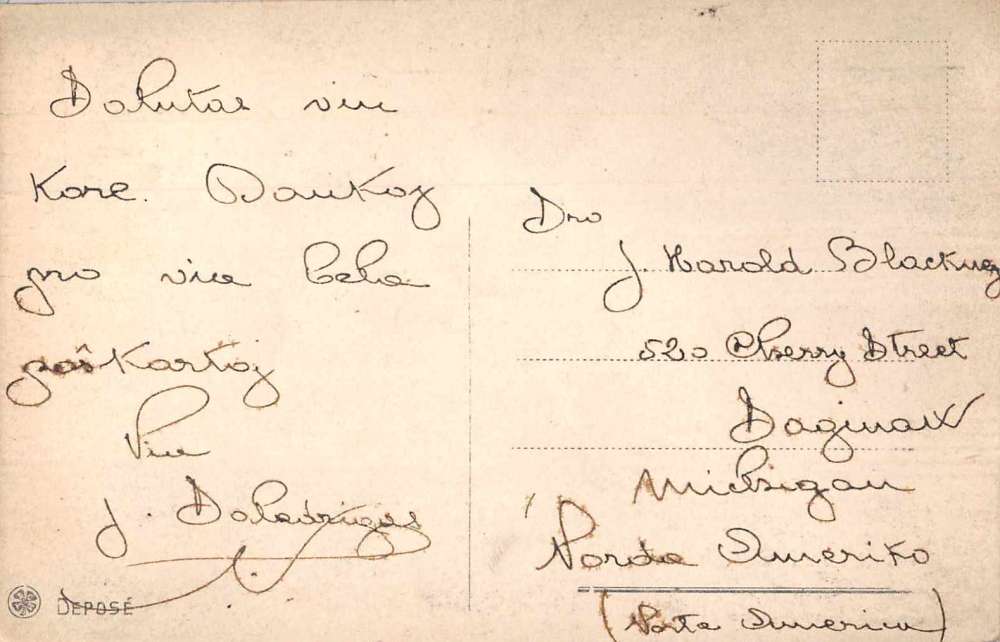 Salutas vin
Kore. Dankoj
pro via bela
poŝkartoj
Via
J.
DEPOSÉ
Dro
J. Harold Blackney
520 Cherry Street
Saginaw
Michigan
Norda Ameriko
(Norta America)